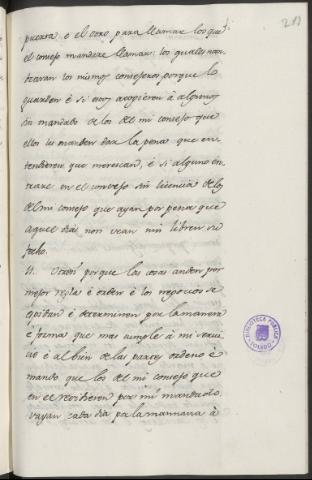 puerta e el otro para llamar los que
el consejo mandare llamar: los quales non
los mismos consejeros porque lo
guarden é si estos acogieren à algunos
sin mandado de los del mi consejo que
ellos les manden dar la pena que en-
tendieren que merescan, é si alguno en-
trare en el consejo sin licencia de los
del mi consejo que ayan por pena que
aquel dia non vean nin libren su
fecho.
11. Otrosi porque las cosas anden por
mejor regla é orden é los negocios se
espidan é determinen por la manera
é forma que mas cumple à mi servi-
cio é al bien de las partes ordeno é
mando que los del mi consejo que
en el residieren por mi mandado
vayan cada dia por la mannana à
211
BIBLIOTECA PÚBLICA
TOLEDO